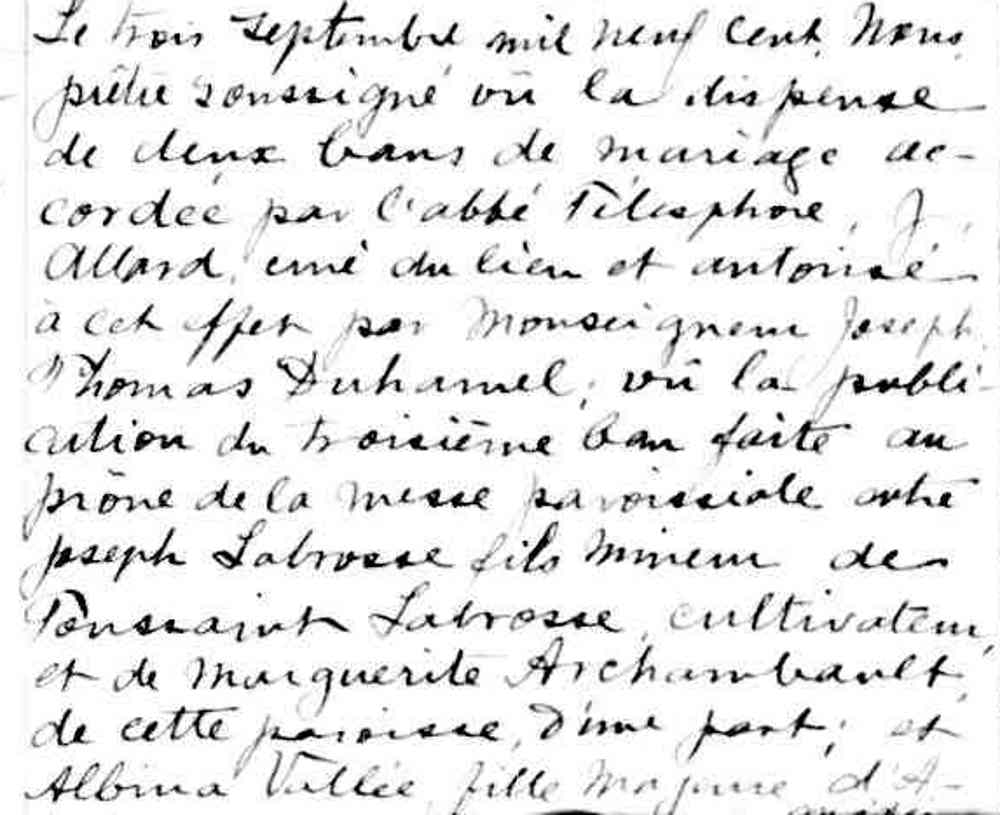 Le trois septembre mil neuf cent, Nous,
prêtre soussigné vû la dispense
de deux bans de mariage ac-
cordée par l'abbé Télesphore, J.
Allard, curé du lieu et autorisé
à cet effet par Monseigneur Joseph
Thomas Duhamel; vû la publi-
cation du troisième ban faite au
prône de la messe paroissiale entre
Joseph Labrosse fils mineur de
Toussaint Labrosse, cultivateur,
et de Marguerite Archambault,
de cette paroisse, d'une part; et
Albina Vallée, fille majeure d'A-